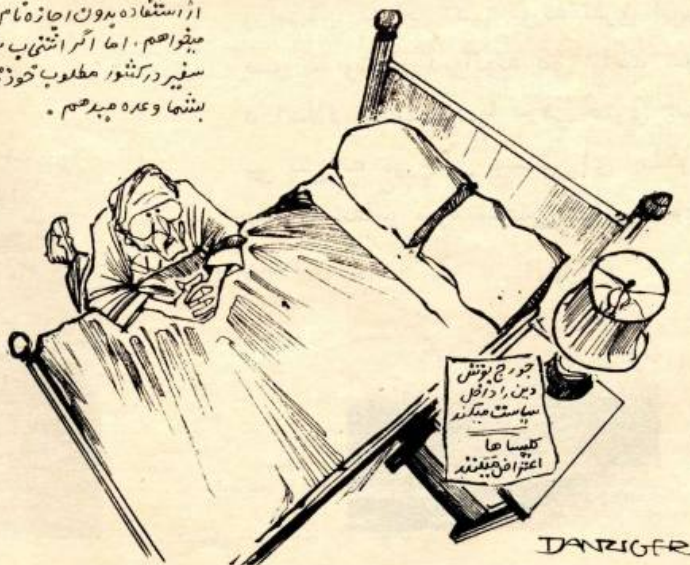 از استفاده بدون اجازه نام
میخواهم. اما اگر انتخاب
سفیر در کشور مطلوب خود
بشما وعده میدهم.
جورج بوش
دین را داخل
سیاست میکند
کلیسا ها
اعتراض میکنند
DANZIGER